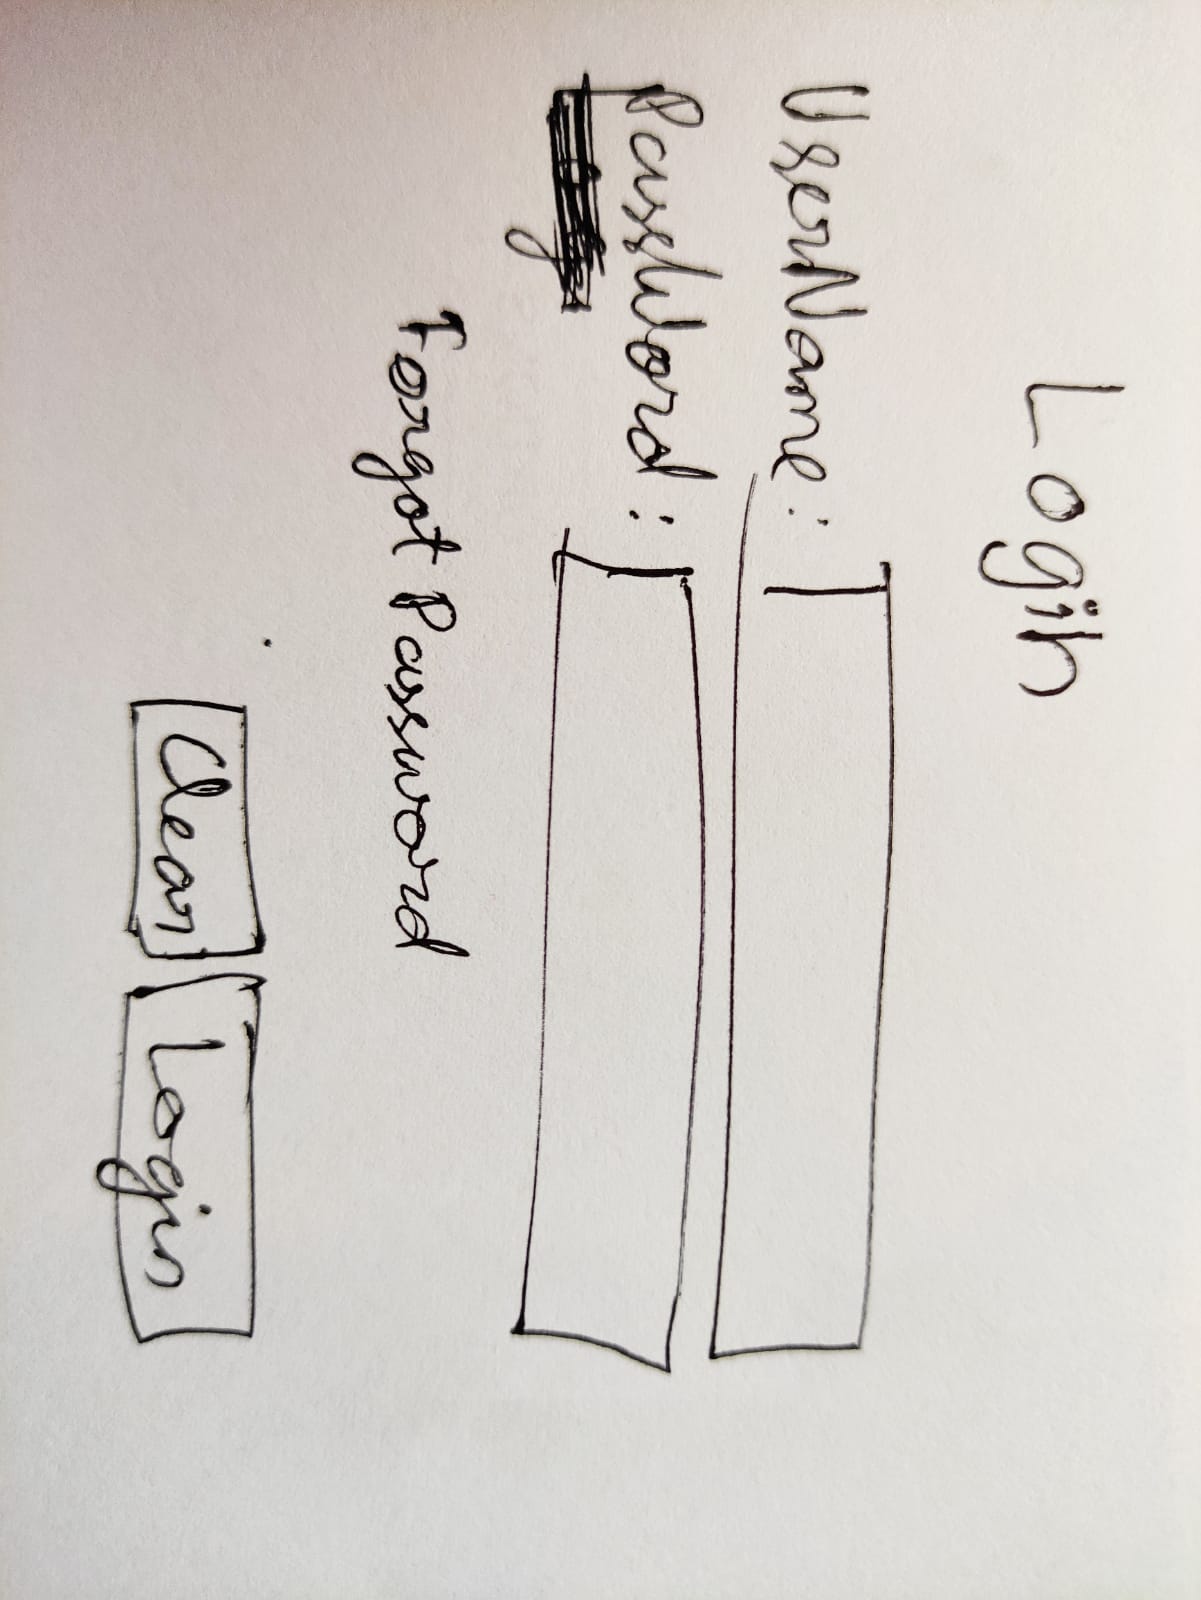 Login
UserName:
PassWord:
Forgot Password
Clear Login